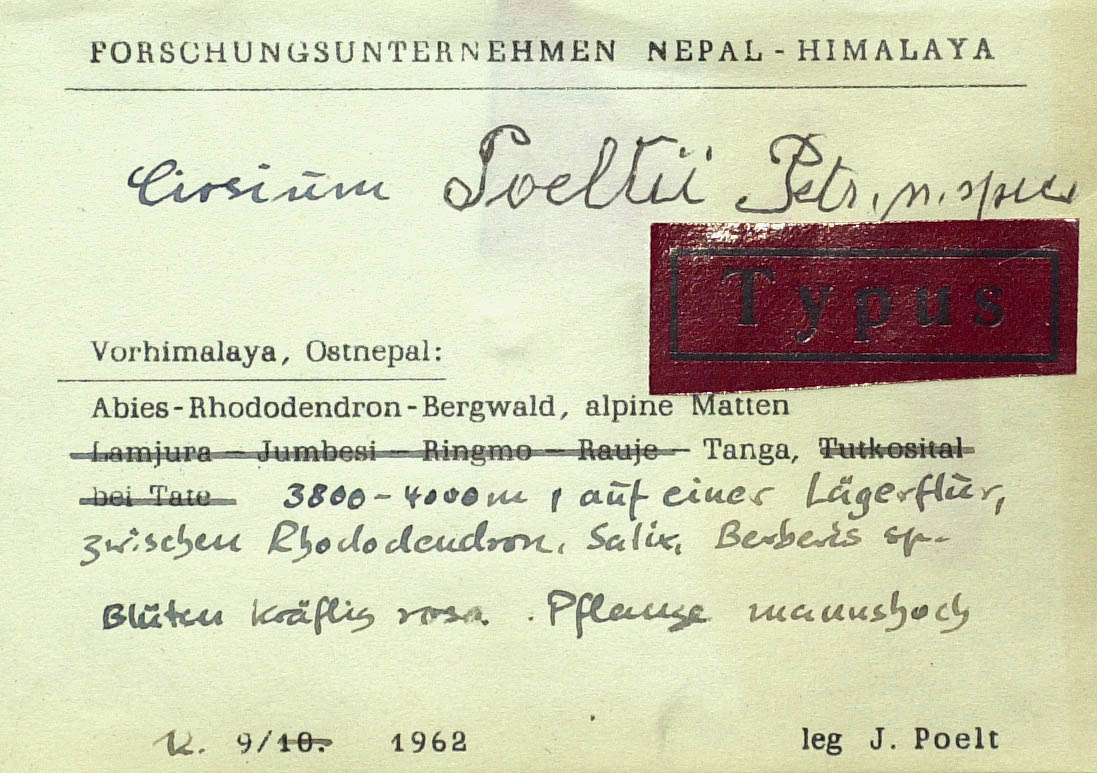 FORSCHUNGSUNTERNEHMEN NEPAL - HIMALAYA
Cirsium Poeltii Petr. n. spec
Typus
Vorhimalaya, Ostnepal:
Abies-Rhododendron-Bergwald, alpine Matten
Lamjura - Jumbesi - Ringmo - Rauje - Tanga, Tutkosital
bei Tate 3800-4000m, auf einer Lägerflur,
zwischen Rhododendron, Salix, Berberis sp.
Blüten kräftig rosa. Pflanze mannshoch
12. 9/10. 1962
leg J. Poelt